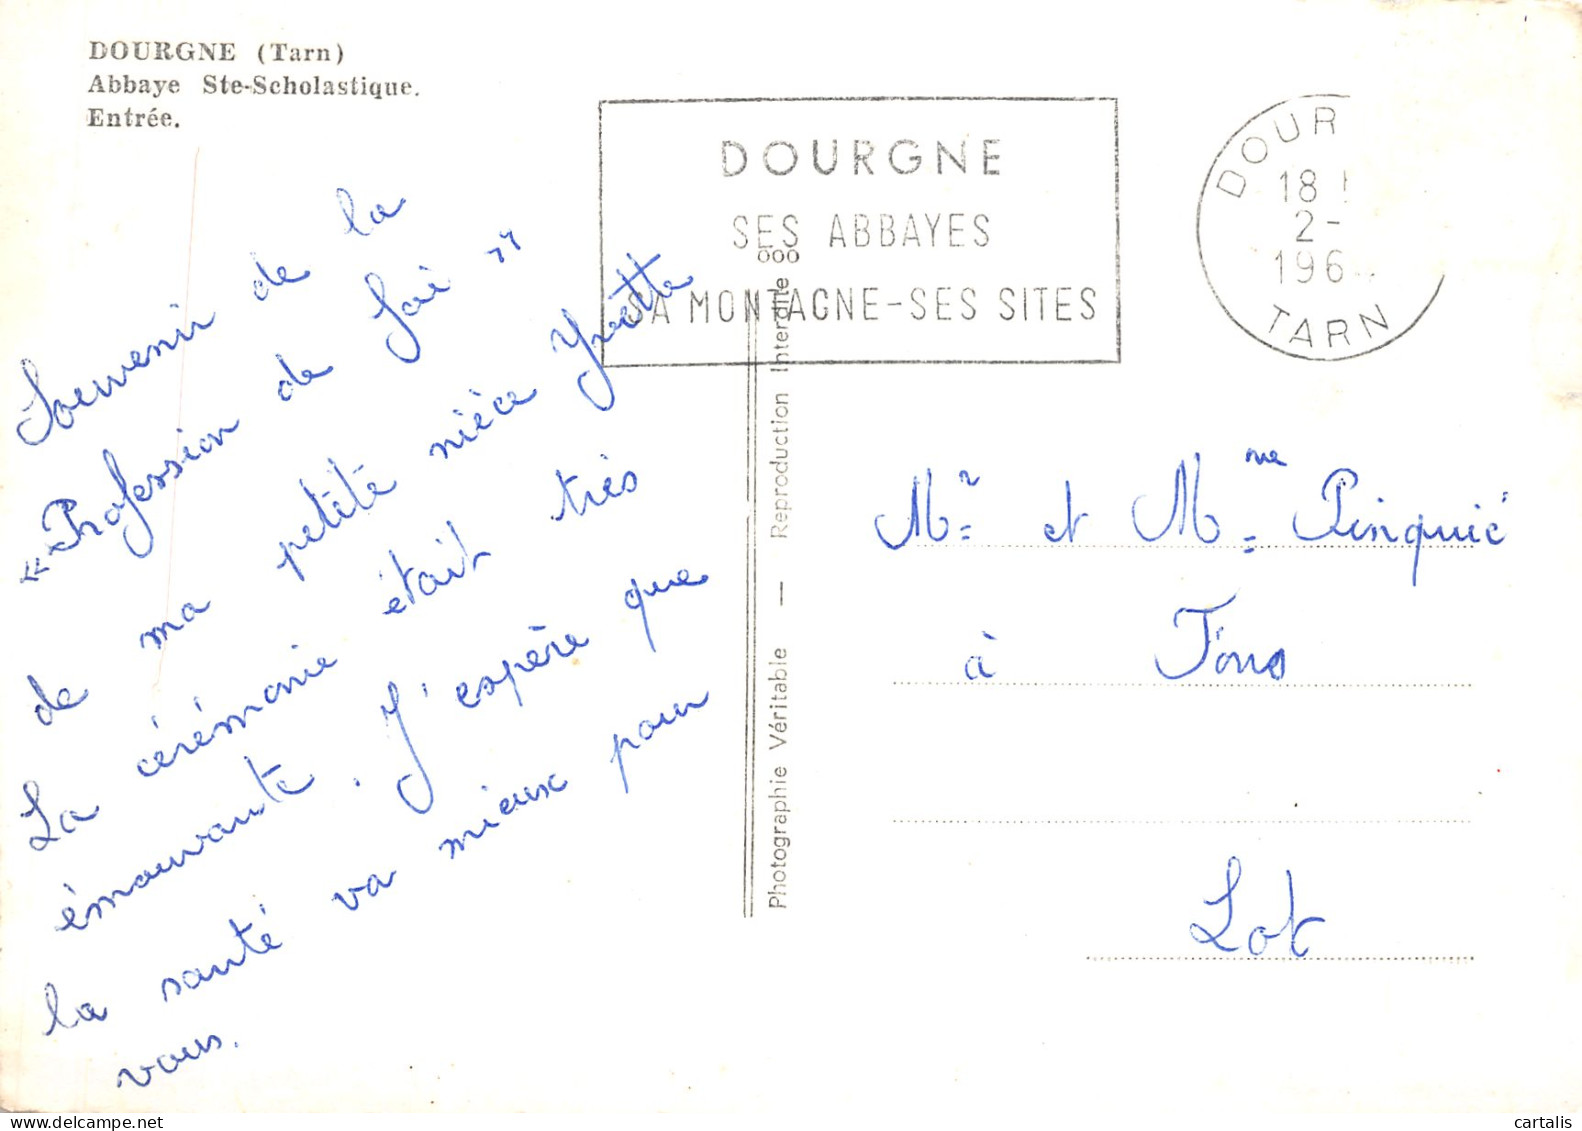 DOURGNE (Tarn)
Abbaye Ste-Scholastique.
Entrée.
DOURGNE
SES ABBAYES
SA MONTAGNE-SES SITES
DOUR
18
2-
196
TARN
Souvenir de la
« Profession de foi »
de ma petite nièce Yvette
La cérémonie était très
émouvante. J'espère que
la santé va mieux pour
vous.
Photographie Véritable — Reproduction Interdite
Mr et Mme Pinquié
à Fons
Lot
cartalis